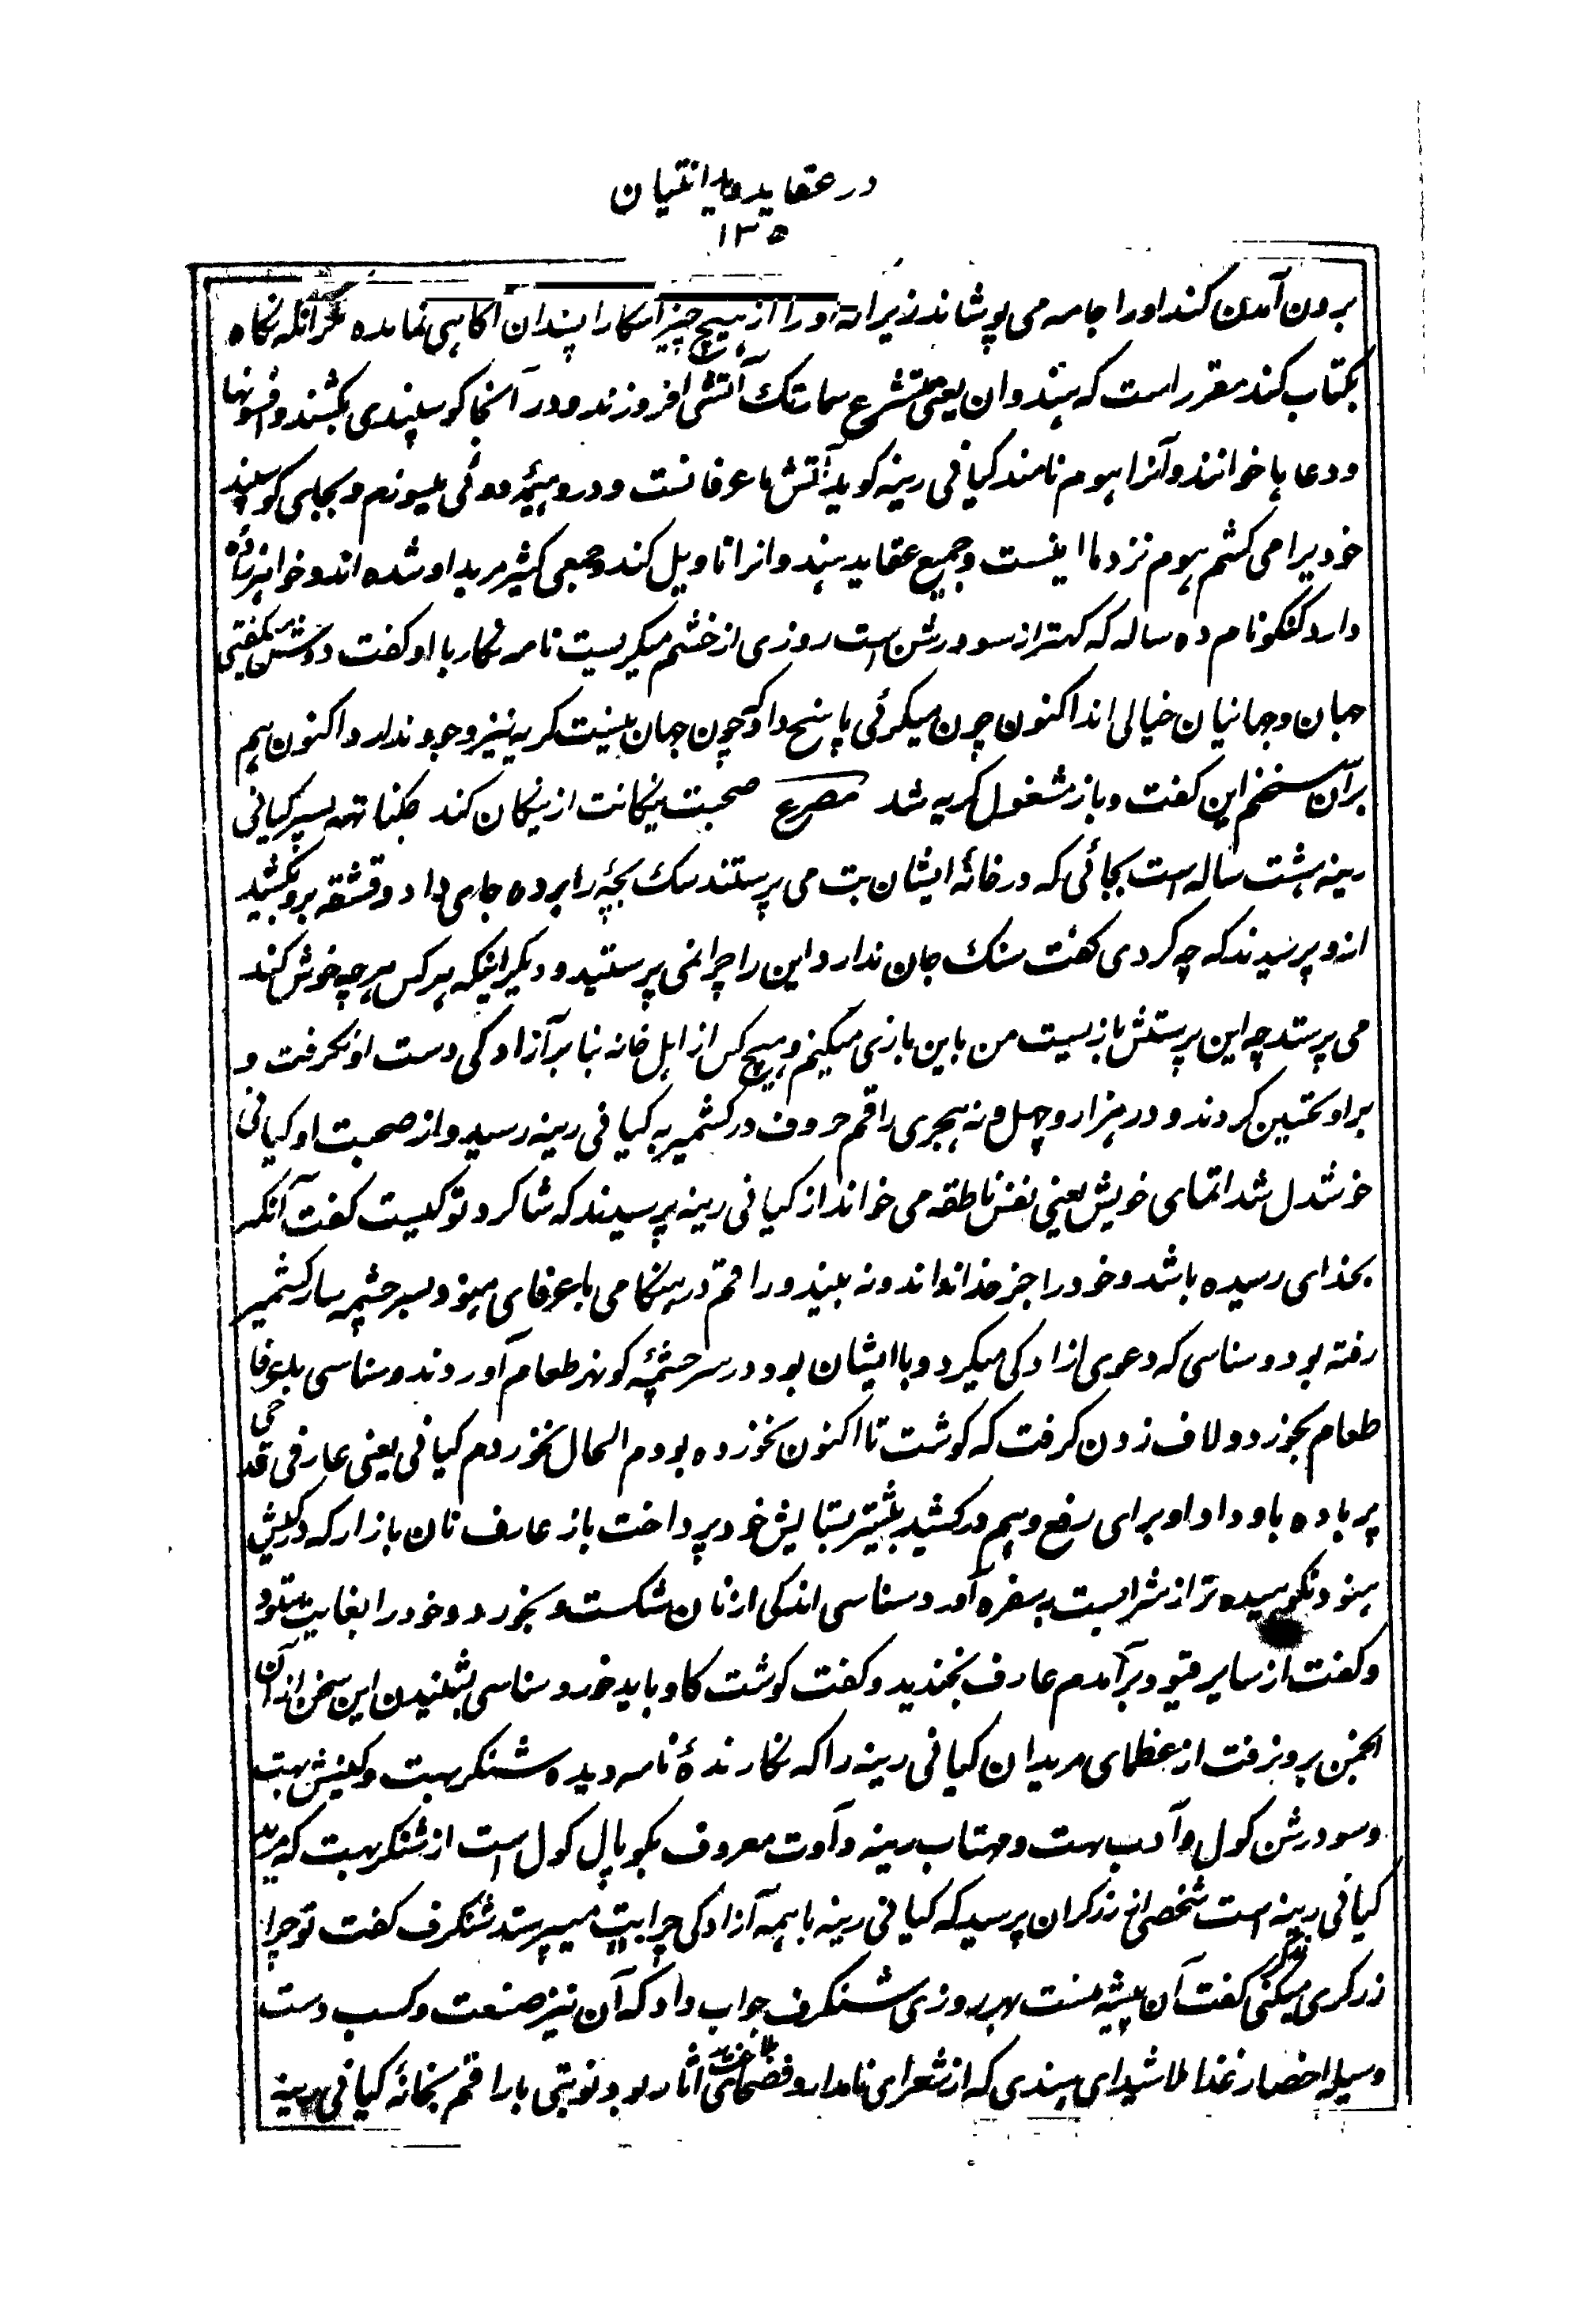 در عقاید ویدانتیان
۱۳۵
برون آمدن کند اورا جامه می پوشاند زیرا که اورا از هیچ چیز آشکارا پندان آکاهی نمانده مگر آنکه نکاه
بکتاب کند مقرر است که هندوان یعنی متشرع سمارتک آتشی افروزند و در آنجا کوسپندی بکشند و افسونها
و دعا ها خوانند و آنرا هوم نامند کیانی رینه کوید آتش ما عرفانست و درو هیمه دوئی میسوزم و بجای کوسپند
خودیرا می کشم هوم نزد ما اینست و جمیع عقاید هندوانرا تاویل کند و جمعی کثیر مرید او شده اند و خواهرزاده
دارد کنکو نام ده ساله که کهتر از سودرشن است روزی از خشم میکریست نامه نکار با او کفت دوش میکفتی
جهان و جهانیان خیالی اند اکنون چون میکرئی پاسخ داد که چون جهان نیست کریه نیز وجود ندارد اکنون هم
بر آن سخنم این کفت و باز مشغول کریه شد مصرع صحبت نیکانت از نیکان کند جکناتهه پسر کیانی
رینه هشت ساله است بجائی که در خانهٔ ایشان بت می پرستند سک بچهٔ را برده جای داد و قشقه برو بکشید
ازو پرسیدند که چه کردی کفت سنک جان ندارد این را چرا نمی پرستید و دیکر اینکه هر کس هر چه خوش کند
می پرستد چه این پرستش بازیست من باین بازی میکنم و هیچ کس از اهل خانه بنا بر آزادکی دست او نکرفت و
بر او تحسین کردند و در هزار و چهل و نه هجری راقم حروف در کشمیر به کیانی رینه رسید و از صحبت او کیانی
خوشدل شد اتمای خویش یعنی نفس ناطقه می خواند از کیانی رینه پرسیدند که شاکرد تو کیست کفت آنکه
بخدای رسیده باشد و خود را جز خدا نداند و نه بیند و راقم در هنکامی با عرفای هنود بسر چشمه سار کشمیر
رفته بود و سناسی که دعوی ازادکی میکرد و با ایشان بود در سر چشمهٔ کوثر طعام آوردند و سناسی با عرفا
طعام بخورد و لاف زدن کرفت که کوشت تا اکنون نخورده بودم الحال بخوردم کیانی یعنی عارفی قدحی
پر باده باو داد او برای رفع وهم درکشید بیشتر بستایش خود پرداخت باز عارف نان بازار که در کیش
هنود نکوهیده تر از شرابست به سفره آورد سناسی اندکی از نان شکست و بخورد و خود را بغایت ستود
و کفت از سایر قیود برآمدم عارف بخندید و کفت کوشت کاو باید خورد سناسی بشنیدن این سخن از آن
انجمن بیرون رفت از عظمای مریدان کیانی رینه را که نکارندهٔ نامه دیده شنکر بهت و کنیش بهت
و سودرشن کول و آدب بهت و مهتاب رینه و آوت معروف بکوپال کول است از شنکر بهت که مرید
کیانی رینه است شخصی از زرکران پرسید که کیانی رینه با همه آزادکی چرا بت میپرستد شنکر ف کفت تو چرا
زرکری میکنی زرکر کفت آن پیشه منست بهر روزی شنکرف جواب داد که آن نیز صنعت و کسب دست
وسیله احضار غذا ملا شیدای هندی که از شعرای نامدار و فصحای بلاغت آثار بود نوبتی با راقم بخانهٔ کیانی رینه